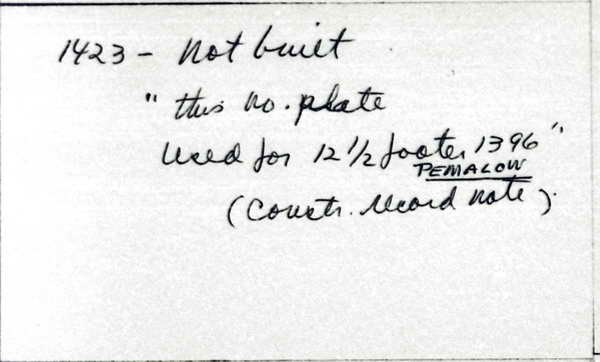 1423 - Not built
" this no. plate
used for 12 1/2 footer 1396"
PEMALOW
(Constr. record note).